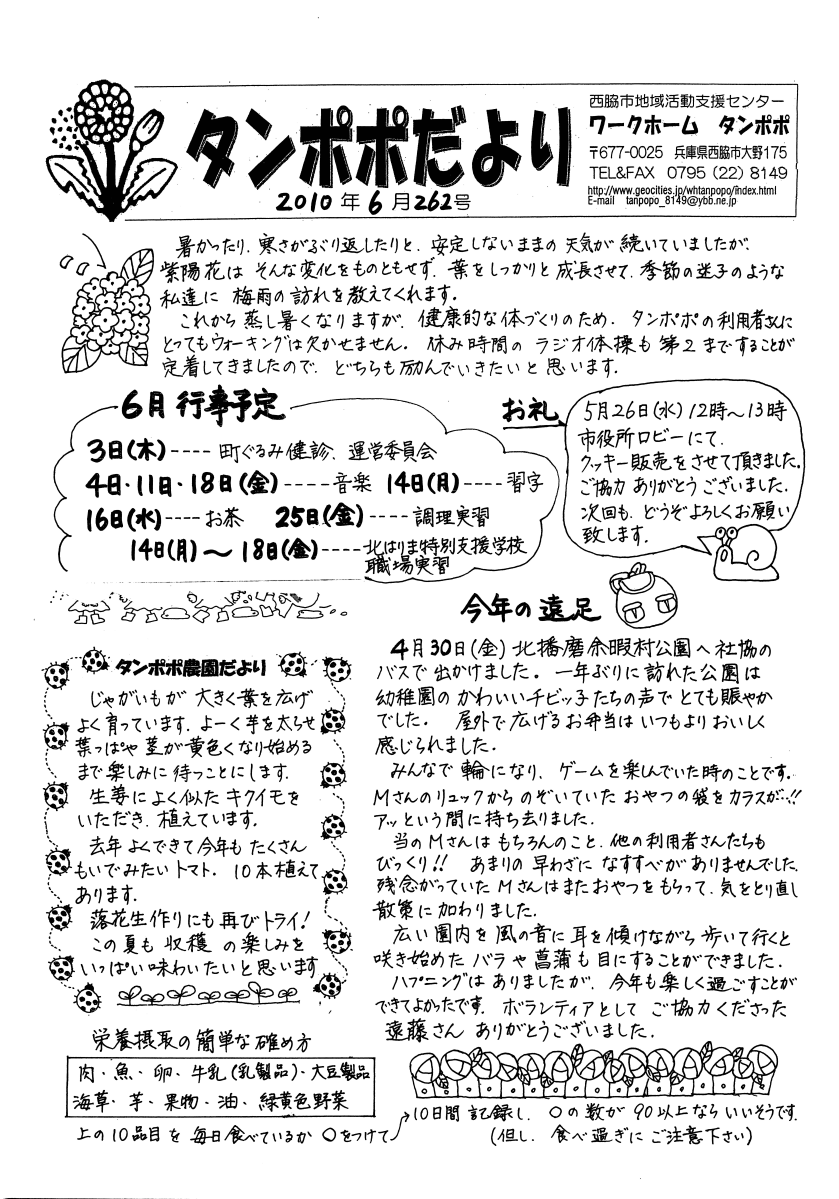 タンポポだより
2010年6月262号
西脇市地域活動支援センター
ワークホーム タンポポ
〒677-0025 兵庫県西脇市大野175
TEL&FAX 0795 (22) 8149
http://www.geocities.jp/whtanpopo/index.html
E-mail tanpopo_8149@ybb.ne.jp
暑かったり、寒さがぶり返したりと、安定しないままの天気が続いていましたが、
紫陽花は そんな変化をものともせず、葉をしっかりと成長させて、季節の迷子のような
私達に 梅雨の訪れを教えてくれます。
これから蒸し暑くなりますが、健康的な体づくりのため、タンポポの利用者さんに
とってもウォーキングは欠かせません。休み時間の ラジオ体操も 第2まですることが
定着してきましたので、どちらも励んでいきたいと思います。
6月行事予定
3日(木)----町ぐるみ健診、運営委員会
4日・11日・18日(金)-----音楽 14日(月)----習字
16日(水)----お茶 25日(金)----調理実習
14日(月)～18日(金)----北はりま特別支援学校
職場実習
お礼
5月26日(水)12時～13時
市役所ロビーにて、
クッキー販売をさせて頂きました。
ご協力 ありがとうございました。
次回も、どうぞよろしくお願い
致します。
タンポポ農園だより
じゃがいもが 大きく葉を広げ
よく育っています。よーく芋を太らせ
葉っぱや茎が黄色くなり始める
まで楽しみに待つことにします。
生姜によく似たキクイモを
いただき、植えています。
去年よくできて今年もたくさん
もいでみたいトマト、10本植えて
あります。
落花生作りにも再びトライ!
この夏も 収穫 の楽しみを
いっぱい味わいたいと思います
今年の遠足
4月30日(金) 北播磨余暇村公園へ社協の
バスで出かけました。一年ぶりに訪れた公園は
幼稚園の かわいいチビッ子たちの声でとても賑やか
でした。 屋外で広げるお弁当はいつもよりおいしく
感じられました。
みんなで輪になり、ゲームを楽しんでいた時のことです。
Mさんのリュックからのぞいていた おやつの袋をカラスが…!!
アッという間に持ち去りました。
当のMさんは もちろんのこと、他の利用者さんたちも
びっくり!! あまりの早わざに なすすべがありませんでした。
残念がっていたMさんはまたおやつをもらって、気をとり直し
散策に加わりました。
広い園内を風の音に耳を傾けながら歩いて行くと
咲き始めた バラや菖蒲も目にすることができました。
ハプニングはありましたが、今年も楽しく過ごすことが
できてよかったです。ボランティアとして ご協力くださった
遠藤さん ありがとうございました。
栄養摂取の簡単な確め方
肉・魚・卵・牛乳(乳製品)・大豆製品
海草・芋・果物・油・緑黄色野菜
上の10品目を毎日食べているか 〇をつけて
10日間記録し、〇の数が90以上ならいいそうです。
(但し、食べ過ぎにご注意下さい)